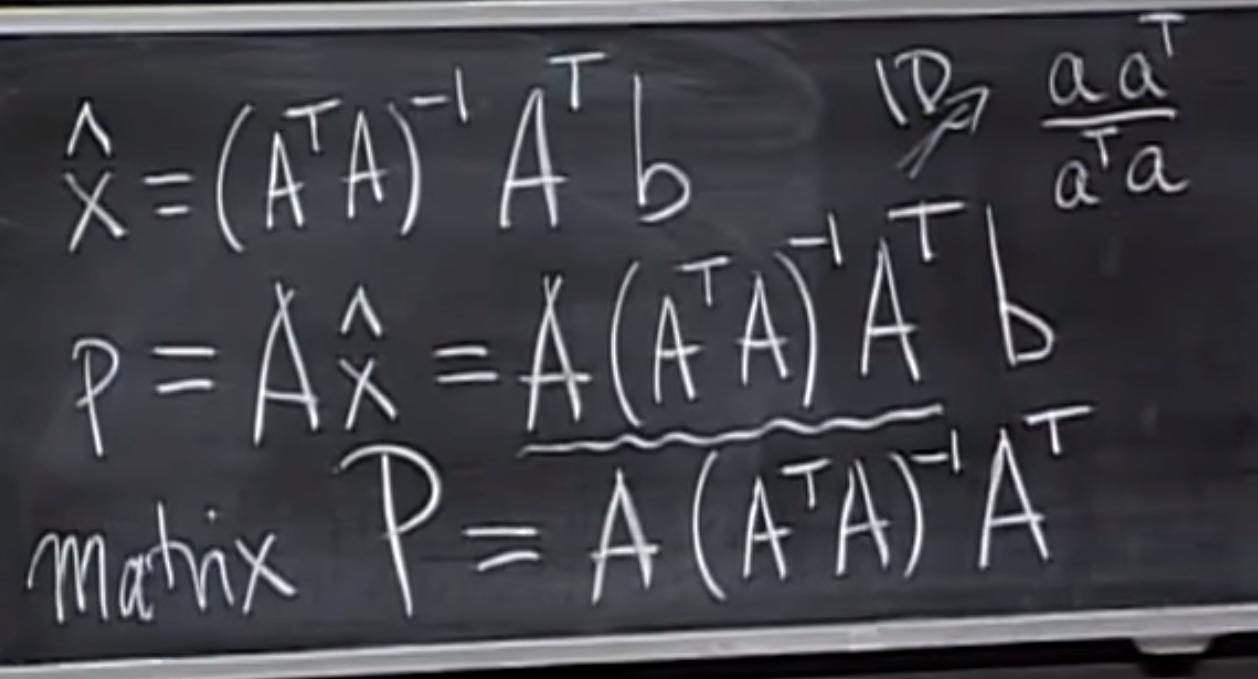 x̂ = (AᵀA)⁻¹ Aᵀ b
1D → aaᵀ / aᵀa
p = A x̂ = A(AᵀA)⁻¹ Aᵀ b
matrix P = A(AᵀA)⁻¹ Aᵀ